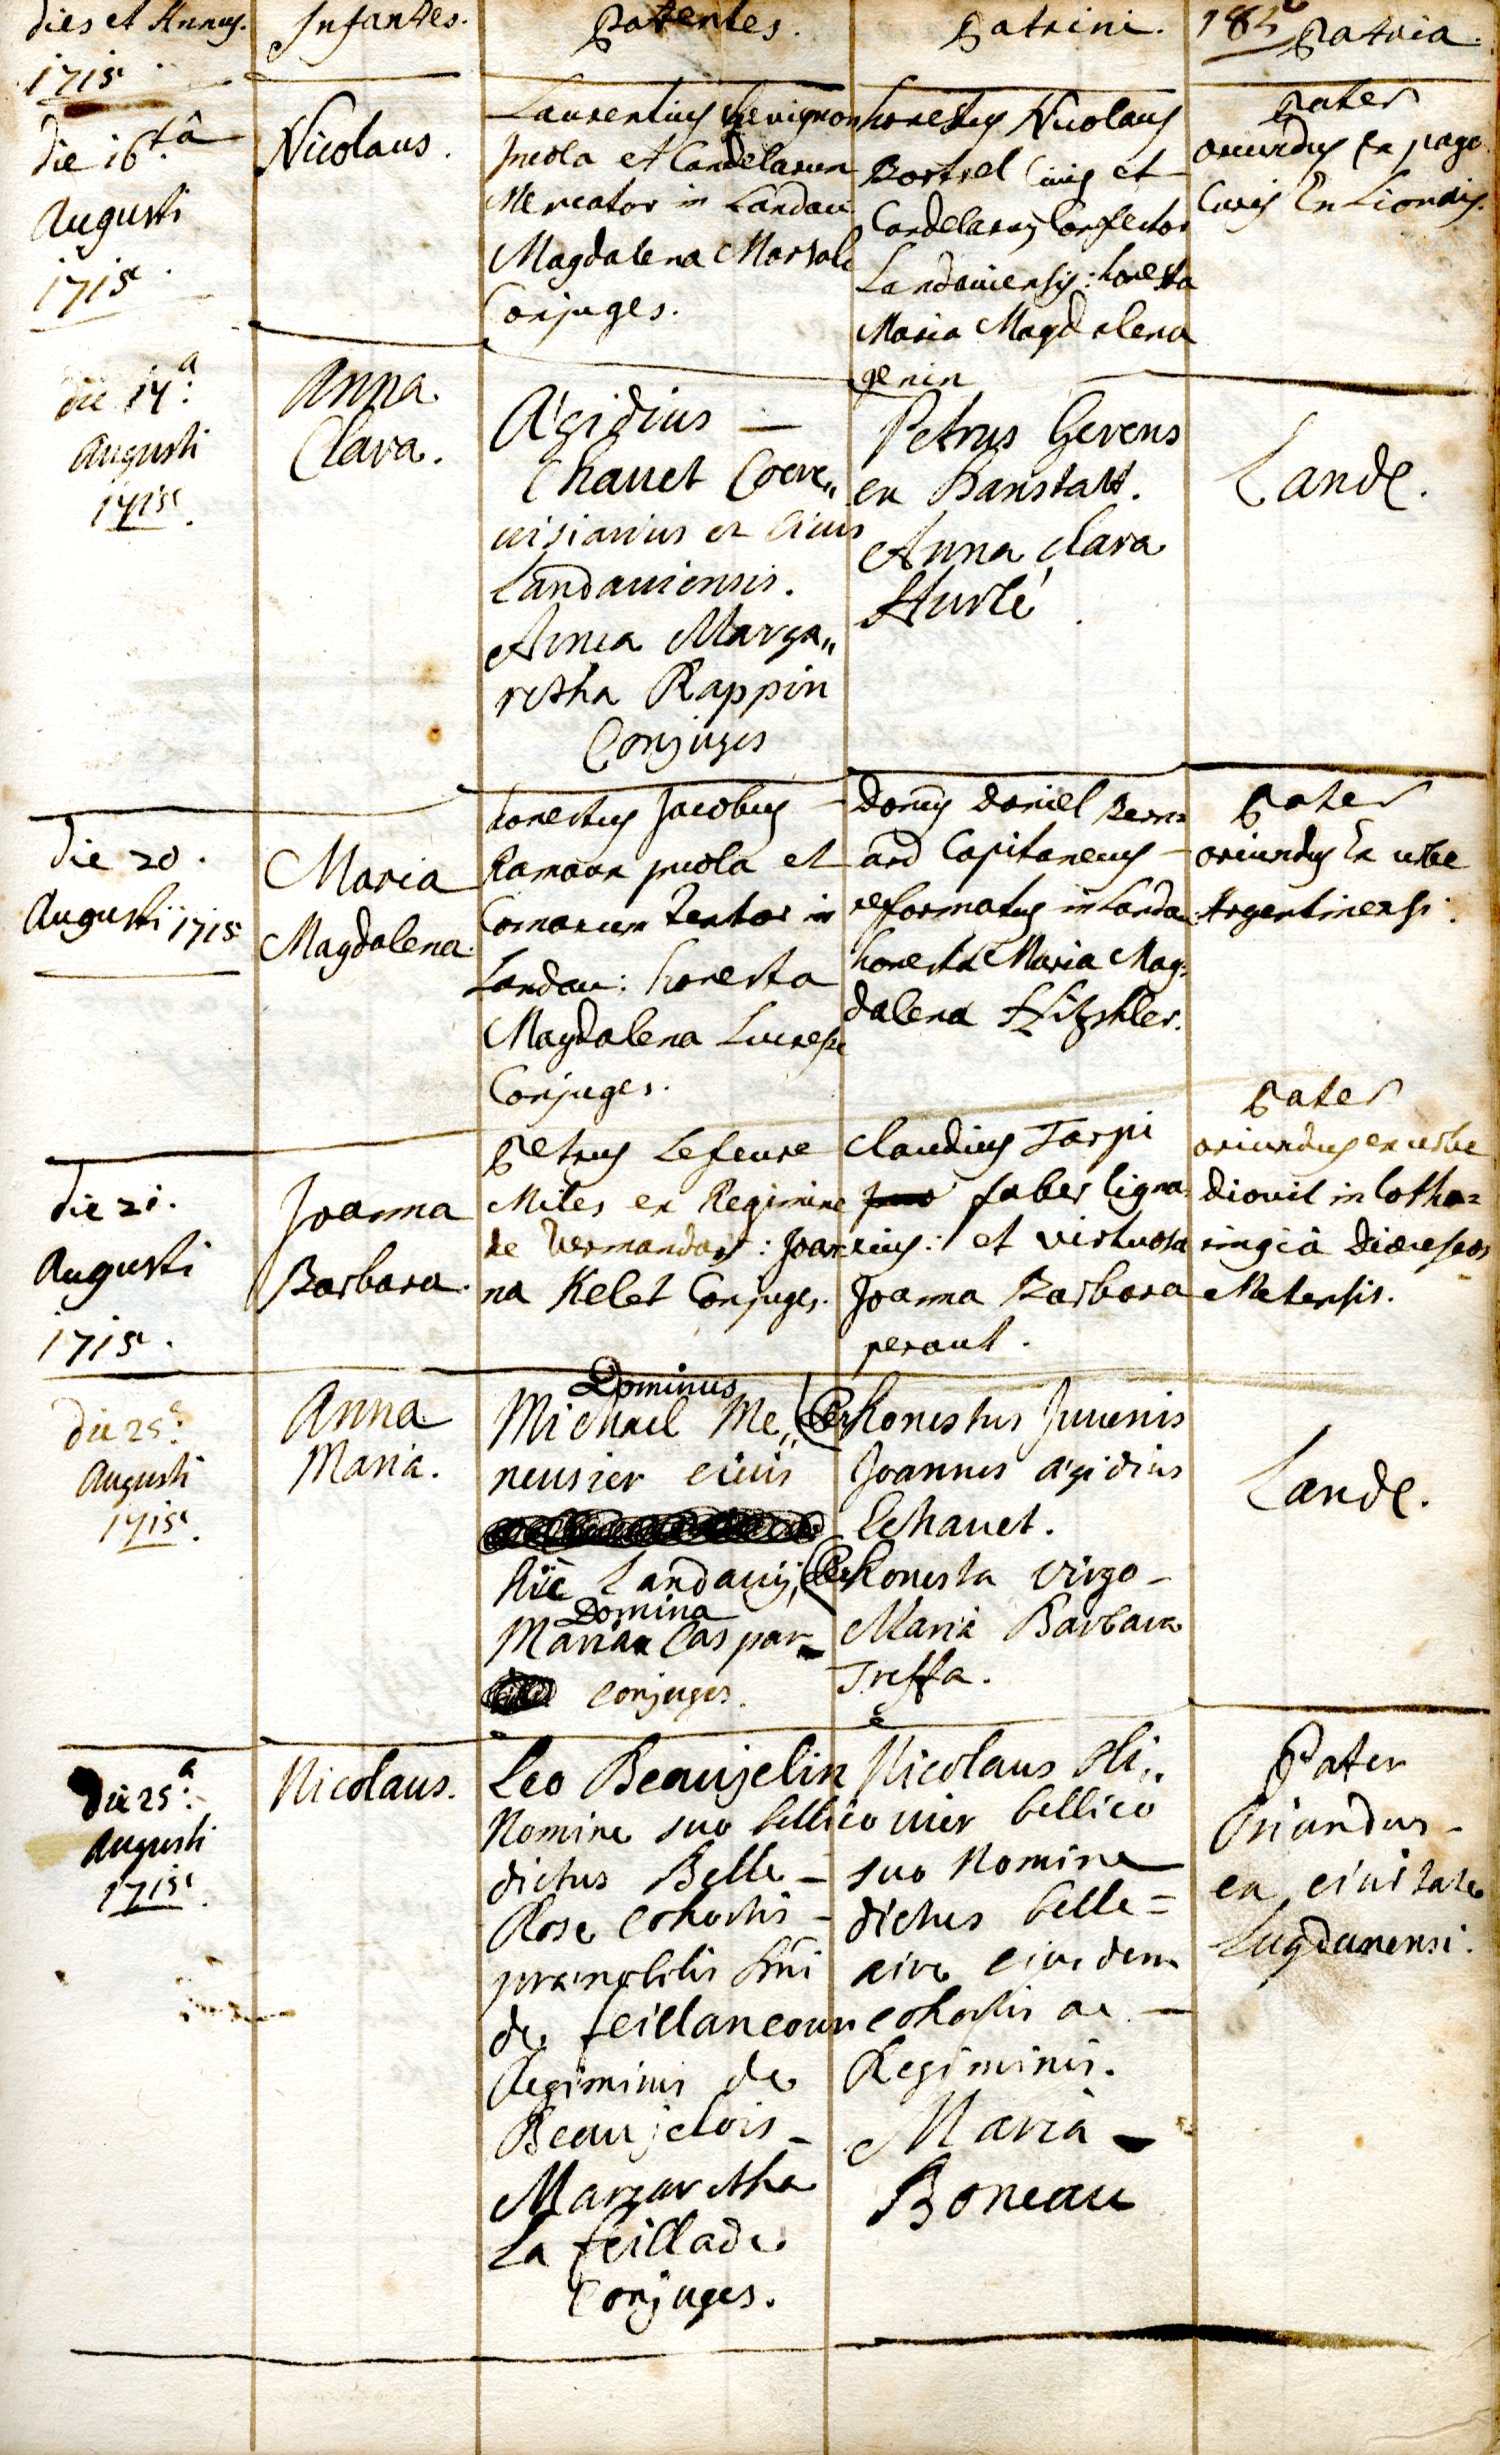 dies et Annus.
Infantes.
Parentes.
Patrini.
Patria.
1715
die 16tâ
Augusti
1715.
Nicolaus.
Laurentius
Incola et Candelarum
Mercator in Landau
Magdalena
Conjuges.
honestus Nicolaus
Civis et
Candelarum Confector
Landaviensis: honesta
Maria Magdalena
genin
Pater
oriundus ex pago
Lionais.
die 17a.
Augusti
1715.
Anna
Clara.
Ægidius —
Chauet Cere„
visiarius et Civis
Landauiensis.
Anna Marga„
retha Rappin
Conjuges
Petrus Gerens
ex Banstatt.
Anna Clara
Hurlé.
Landę.
die 20.
Augusti 1715
Maria
Magdalena.
honestus Jacobus —
incola et
Comarum textor in
Landau: honesta
Magdalena
Conjuges.
Daniel Bern=
ard Capitaneus —
reformatus in Landa
honesta Maria Mag=
dalena Hitzhler.
Pater
oriundus ex urbe
Argentinensi.
die 21.
Augusti
1715.
Joanna
Barbara.
Petrus Lefeure
Miles ex Regimine
de Vermandois: Joan
na Kelet Conjuges.
Claudius Tarpi
faber ligna=
rius: et virtuosa
Joanna Barbara
peraut.
Pater
oriundus ex urbe
diouil in lotha=
ringiâ Dioeceseos
Metensis.
die 25a.
Augusti
1715.
Anna
Maria.
Dominus
Michael Me„
neusier civis
hîc Landavij,
Domina
Maria Caspar
conjuges.
honestus Juuenis
Joannes Ægidius
Echauet.
honesta virgo —
Maria Barbara
Treffa.
Landę.
die 25a.
Augusti
1715.
Nicolaus.
Leo Beaujelin
Nomine suo bellico
dictus Belle —
Rose cohortis —
prænobilis Dñi
de feillancour
Regiminis de
Beaujelois —
Margaretha
La feillade
Conjuges.
Nicolaus Oli„
uier bellico
suo Nomine
dictus belle =
aire eiusdem
cohortis ac —
Regiminis.
Maria —
Boneau
Pater
Oriundus —
ex civitate
Lugdunensi.